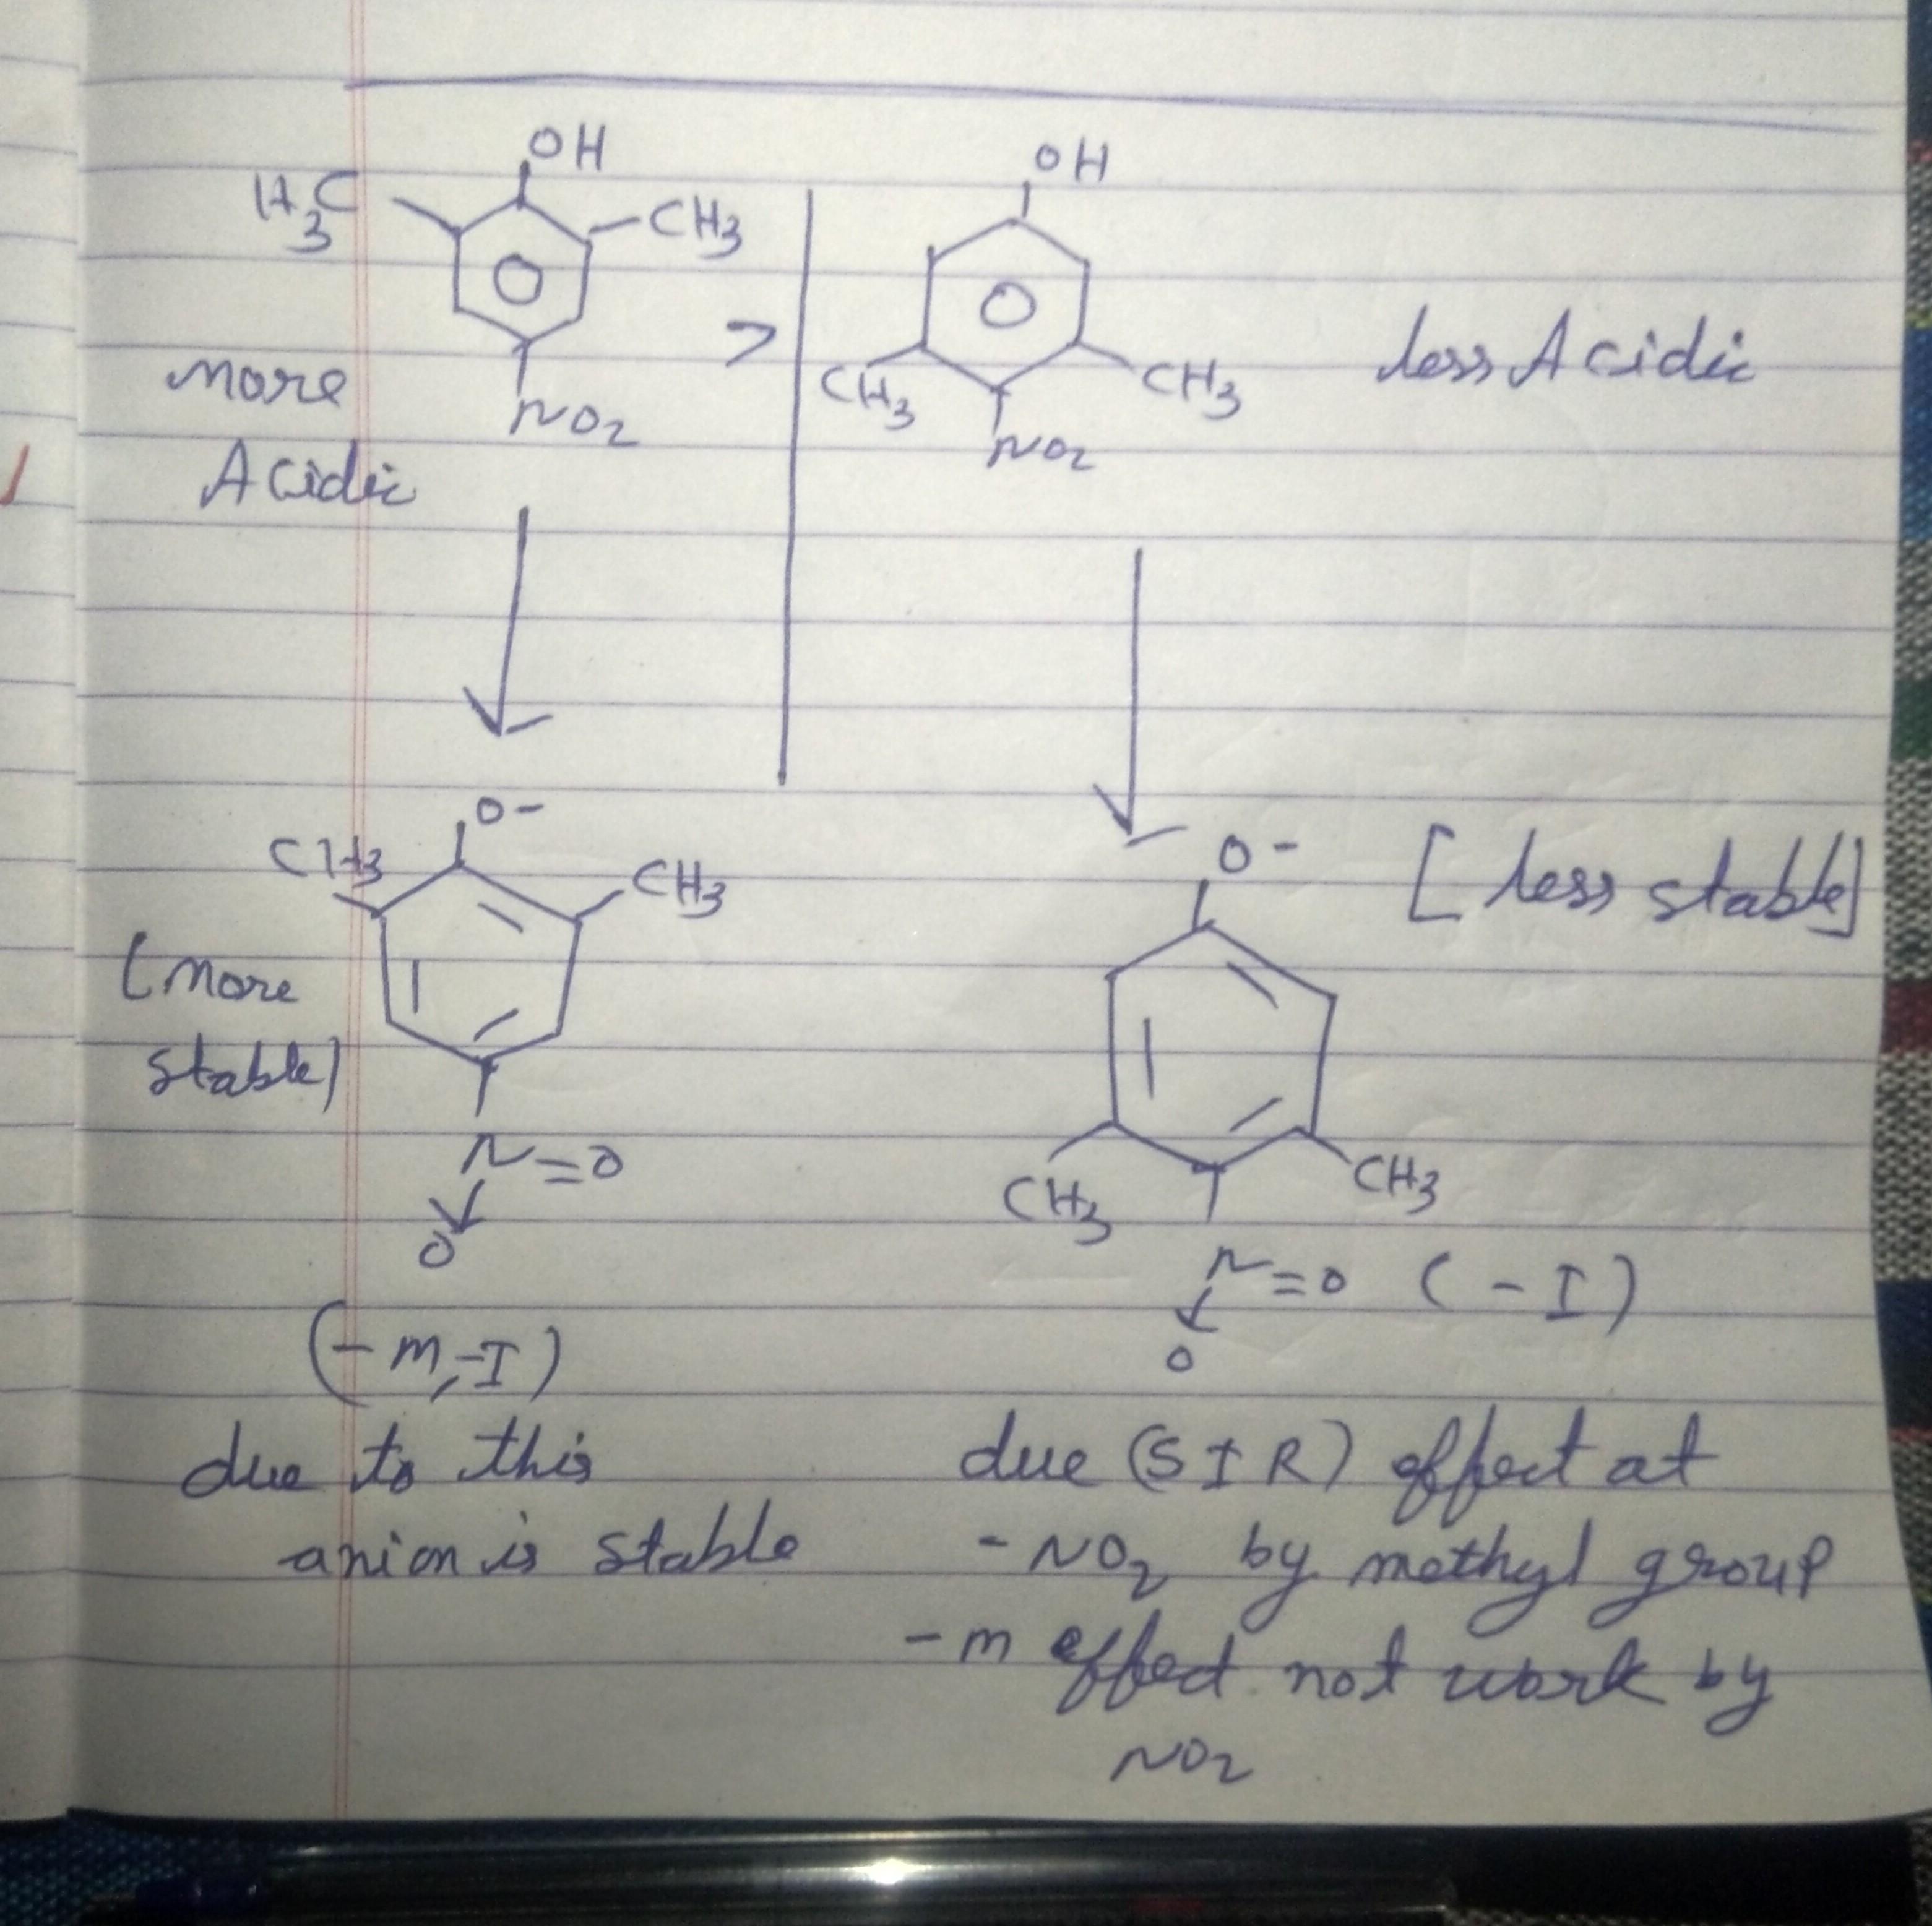 OH
H3C
CH3
>
more
Acidic
NO2
OH
CH3
CH3
NO2
less Acidic
O-
CH3
CH3
(more
stable)
N=O
O
(-m,-I)
due to this
anion is stable
O-
[less stable]
CH3
CH3
N=O (-I)
O
due (SIR) effect at
-NO2 by methyl group
-m effect not work by
NO2